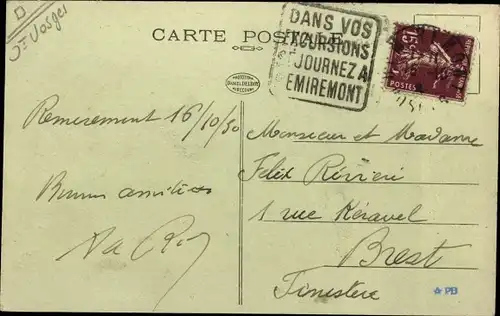 D
Vosges
CARTE POSTALE
DANS VOS
EXCURSIONS
JOURNEZ A
REMIREMONT
15c
POSTES
Remiremont 16/10/30
Bonnes amitiés
Monsieur et Madame
Felix Rivière
1 rue Kéravel
Brest
Finistere
PB